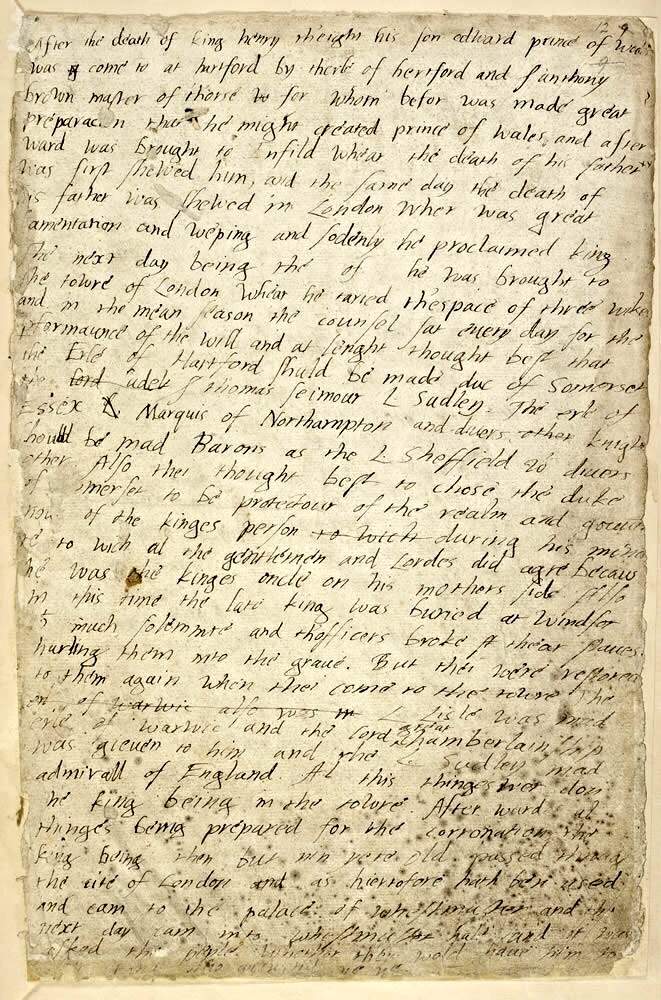 12 9
After the death of king henry theight his son edward prince of wales
was come to at hartford by therle of hertford and S anthony
brown master of thorse to for whom befor was made great
preparacion that he might created prince of wales, and after
ward was brought to Infild whear the death of his father
was first shewed him, and the same day the death of
his father was shewed in London wher was great
lamentation and weping and sodenly he proclaimed king
The next day being the of he was brought to
the towre of London whear he taried thespace of three wekes
and in the mean season the counsel sat every day for the
performaunce of the will and at lenght thought best that
the Erle of Hartford should be made duc of Somerset
the lord S thomas Seimour L Sudley. The erle of
Essex Marquis of Northampton and divers other knights
should be mad Barons as the L Sheffield divers
other. Also thei thought best to chose the duke
of Somerset to be protectour of the realm and govern
nour of the kinges person to wich during his minor
ite to wich al the gentlemen and Lordes did agre becaus
he was the kinges oncle on his mothers side Also
in this time the late king was buried at Windsor
much solemnite and thofficers broke thear staves
hurling them into the grave. But thei were restored
to them again when thei come to the towre The
of warwic also was L Lisle was mad
erle of warwic and the lord great chamberlainship
was gieven to him and the L Sudley mad
admirall of England. Al this thinges wer don
the king being in the towre. After ward al
thinges being prepared for the corronation the
king being then but nin yere old passed through
the cite of London and as hierrofore hath bene used
and cam to the palace of whestmuster and the
next day cam into whestmuster hall and it was
asked the people whether thei wold have him to